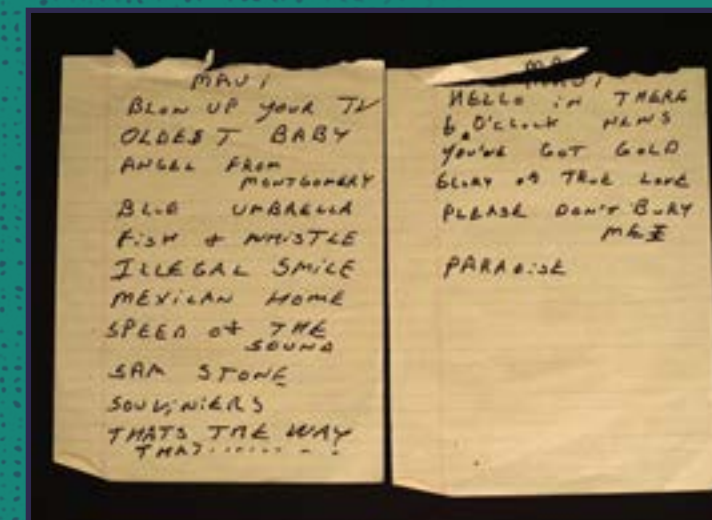 MAUI
BLOW UP YOUR TV
OLDEST BABY
ANGEL FROM
MONTGOMERY
BLUE UMBRELLA
FISH & WHISTLE
ILLEGAL SMILE
MEXICAN HOME
SPEED OF THE
SOUND
SAM STONE
SOUVINIERS
THATS THE WAY
THAT..........
MAUI
HELLO IN THERE
6 O'CLOCK NEWS
YOU'VE GOT GOLD
GLORY OF TRUE LOVE
PLEASE DON'T BURY
ME
PARADISE